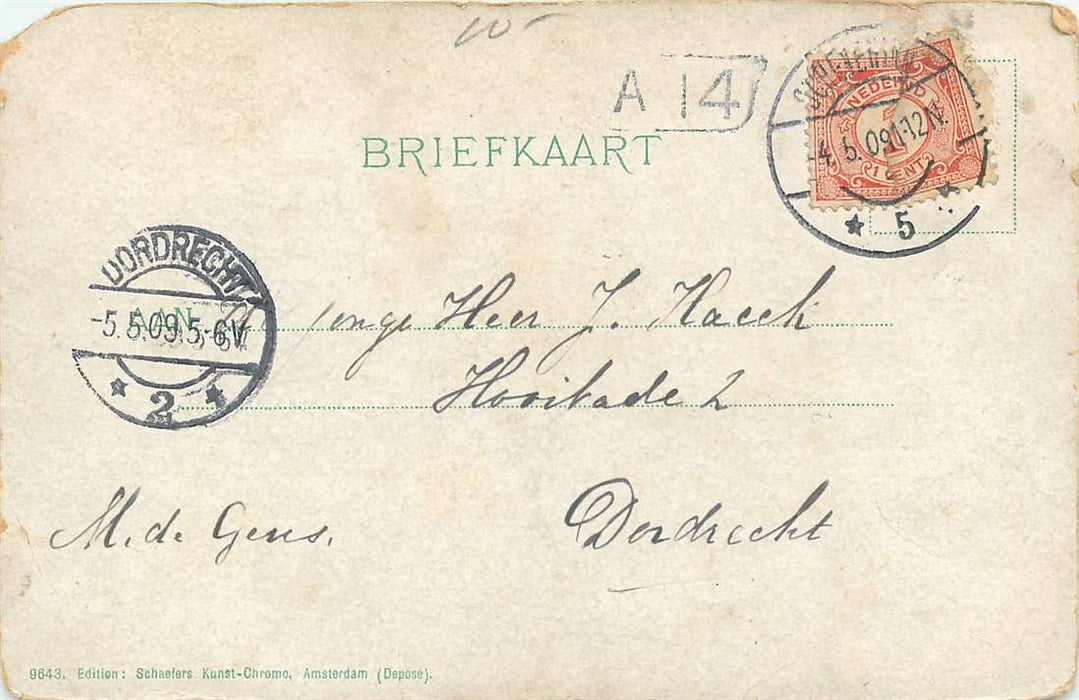 A 14
BRIEFKAART
NEDERLAND
1
1 CENT
4.5.09 11-12N.
5
DORDRECHT
-5.5.09.5-6V
2
AAN
jonge Heer J. Kacch
Hooikade 2
Dordrecht
M. de Geus.
9643. Edition: Schaefers Kunst-Chromo, Amsterdam (Deposé).